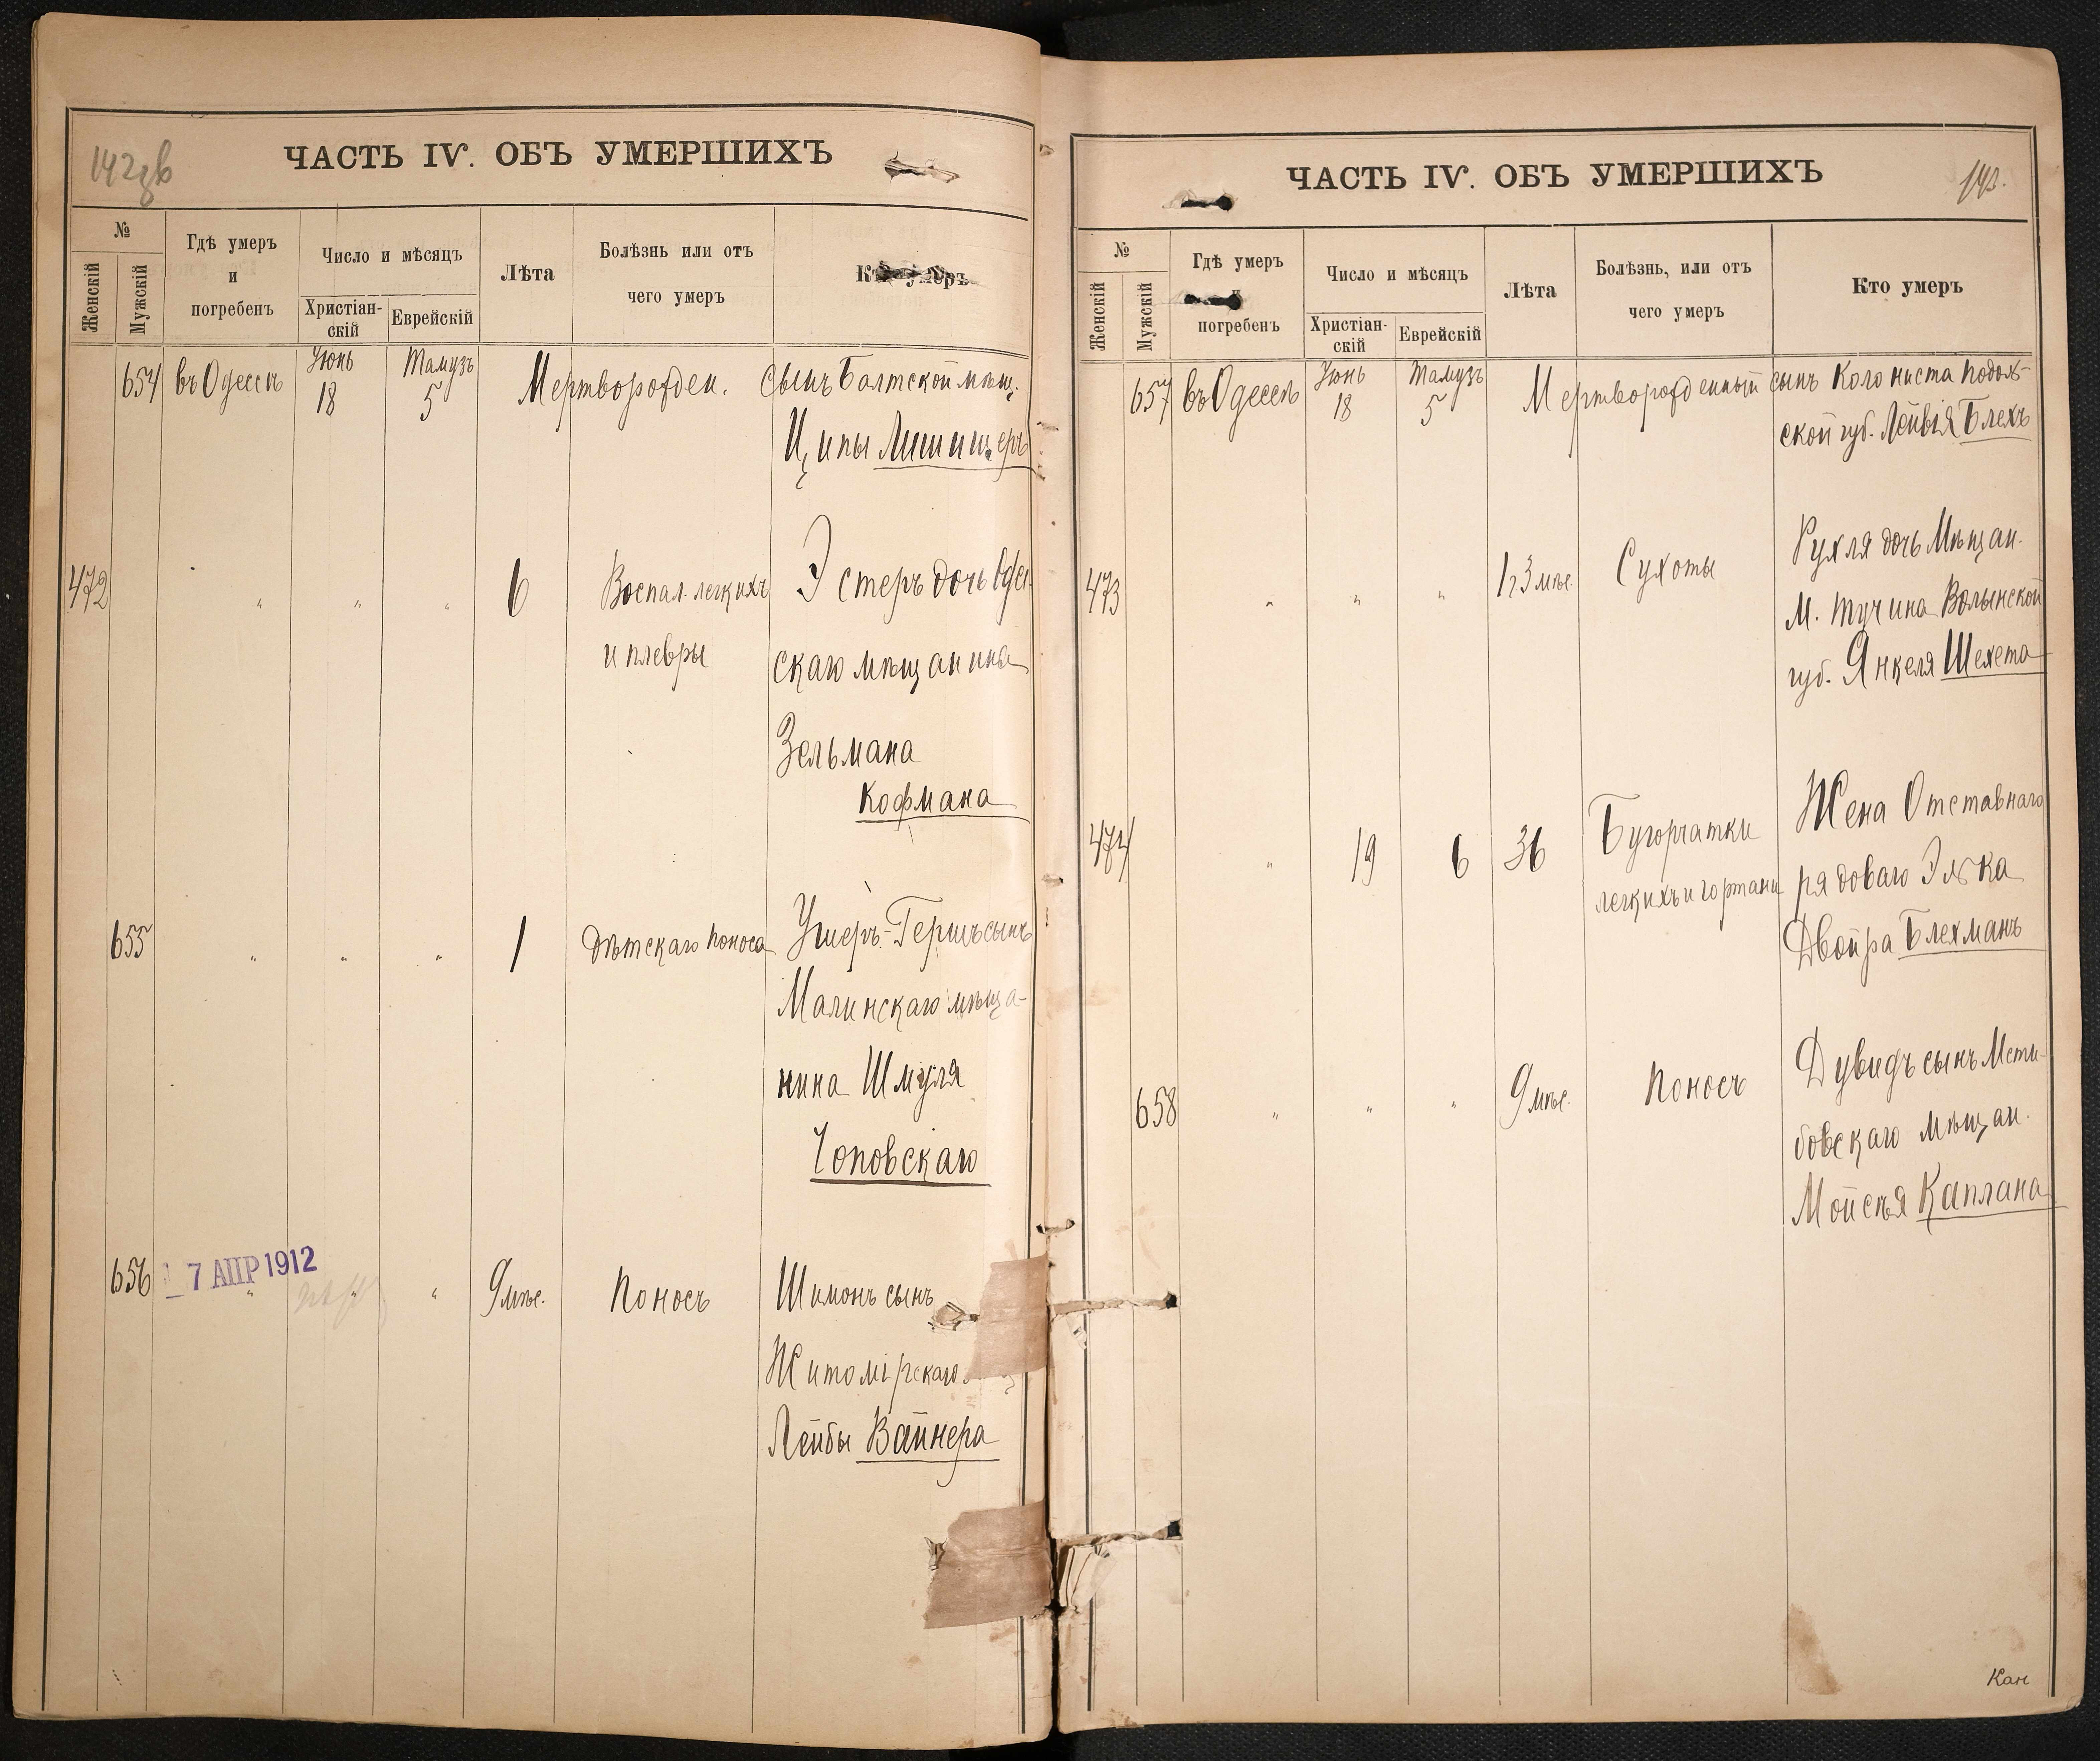 ЧАСТЬ IV. ОБЪ УМЕРШИХЪ
№
Женскій
Мужскій
Гдѣ умеръ
и
погребенъ
Число и мѣсяцъ
Христіан-
скій
Еврейскій
Лѣта
Болѣзнь или отъ
чего умеръ
Кто умеръ
654 въ Одессѣ Іюнь 18 Тамузъ 5 Мертворожден. сынъ Балтской мѣщ.
Ципы
472 " " " 6 Воспал. легкихъ Эстеръ дочь Одес-
и плевры скаго мѣщанина
Зельмана
Кофмана
655 " " " 1 Дѣтскаго поноса Умеръ-Гершъ сынъ
Малинскаго мѣща-
нина Шмуля
Чоповскаго
656 7 АПР 1912 " " " 9 мѣс. Поносъ Шимонъ сынъ
Житомірскаго
Лейбы Вайнера
ЧАСТЬ IV. ОБЪ УМЕРШИХЪ
№
Женскій
Мужскій
Гдѣ умеръ
и
погребенъ
Число и мѣсяцъ
Христіан-
скій
Еврейскій
Лѣта
Болѣзнь, или отъ
чего умеръ
Кто умеръ
657 въ Одессѣ Іюнь 18 Тамузъ 5 Мертворожденный сынъ Колониста Подоль-
ской губ. Лейвія Блехъ
473 " " " 1 г. 3 мѣс. Сухоты Рухля дочь Мѣщан.
М. Тучина Волынской
губ. Янкеля Шехета
474 " 19 6 36 Бугорчатки Жена Отставнаго
легкихъ и гортани рядоваго Элька
Двойра Блехманъ
658 " " " 9 мѣс. Поносъ Дувидъ сынъ Мети-
бовскаго мѣщан.
Мойсѣя Каплана
Кан